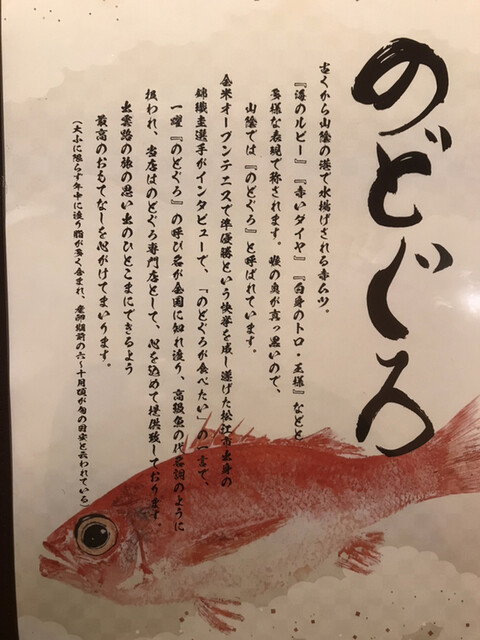 のどぐろ
古くから山陰の港で水揚げされる赤ムツ。
『海のルビー』『赤いダイヤ』『白身のトロ・王様』などと
多様な表現で称されます。喉の奥が真っ黒いので、
山陰では『のどぐろ』と呼ばれています。
全米オープンテニスで準優勝という快挙を成し遂げた松江市出身の
錦織圭選手がインタビューで、「のどぐろが食べたい」の一言で、
一躍『のどぐろ』の呼び名が全国に知れ渡り、高級魚の代名詞のように
扱われ、当店はのどぐろ専門店として、心を込めて提供致しております。
出雲路の旅の思い出のひとこまにできるよう
最高のおもてなしを心がけてまいります。
(大小に限らず年中に渡り脂が多く含まれ、産卵期前の六〜十月頃が旬の目安と云われている)